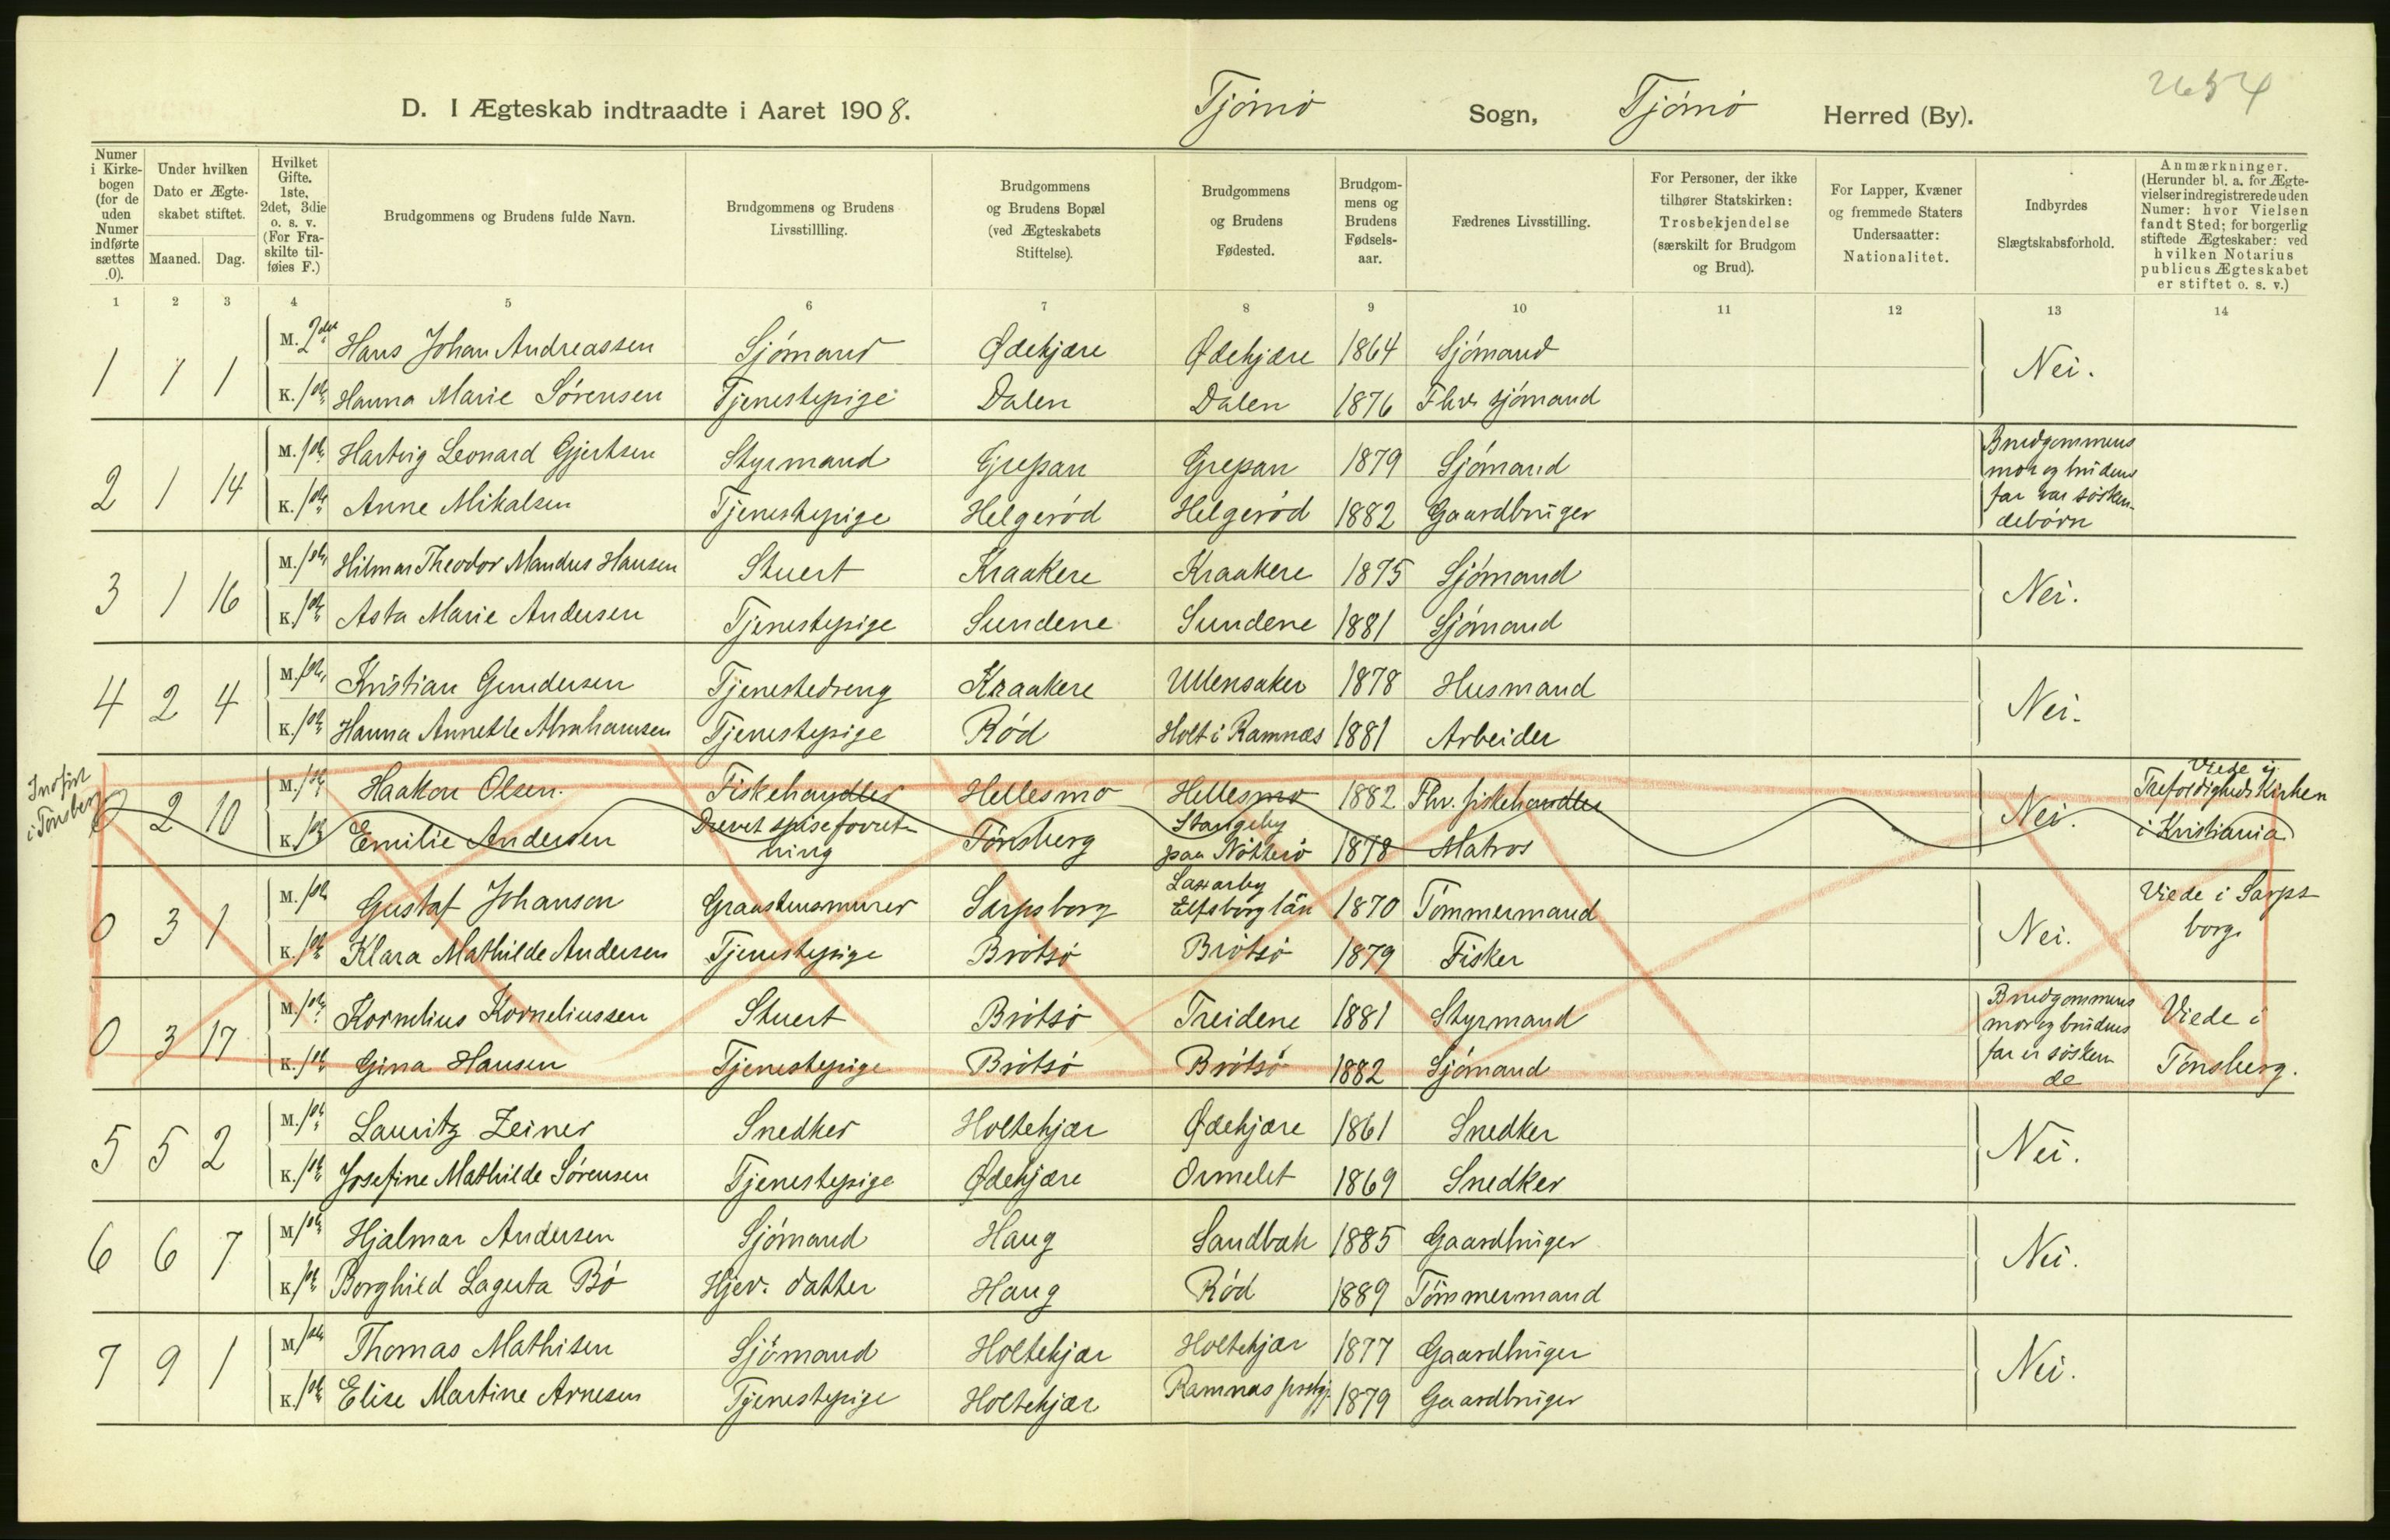 2654
D. I Ægteskab indtraadte i Aaret 1908. Tjömö Sogn, Tjömö Herred (By).
Numer i Kirkebogen (for de uden Numer indførte sættes 0).
Under hvilken Dato er Ægteskabet stiftet.
Maaned. Dag.
Hvilket Gifte. 1ste, 2det, 3die o. s. v. (For Fraskilte tilføies F.)
Brudgommens og Brudens fulde Navn.
Brudgommens og Brudens Livsstillling.
Brudgommens og Brudens Bopæl (ved Ægteskabets Stiftelse).
Brudgommens og Brudens Fødested.
Brudgommens og Brudens Fødselsaar.
Fædrenes Livsstilling.
For Personer, der ikke tilhører Statskirken: Trosbekjendelse (særskilt for Brudgom og Brud).
For Lapper, Kvæner og fremmede Staters Undersaatter: Nationalitet.
Indbyrdes Slægtskabsforhold.
Anmærkninger. (Herunder bl. a. for Ægtevielser indregistrerede uden Numer: hvor Vielsen fandt Sted; for borgerlig stiftede Ægteskaber: ved hvilken Notarius publicus Ægteskabet er stiftet o. s. v.)
1 2 3 4 5 6 7 8 9 10 11 12 13 14
1 1 1 M. 2det Hans Johan Andreassen Sjömand Ødekjære Ødekjære 1864 Sjömand Nei.
K. 1ste Hanna Marie Sørensen Tjenestepige Dalen Dalen 1876 Fhv. sjömand
2 1 14 M. 1ste Hartvig Leonard Gjertsen Styrmand Grepan Grepan 1879 Sjömand Brudgommens mor og brudens far var söskendebörn
K. 1ste Anne Mikalsen Tjenestepige Helgeröd Helgeröd 1882 Gaardbruger
3 1 16 M. 1ste Hilmar Theodor Mandus Hansen Stuert Kraakere Kraakere 1875 Sjömand Nei.
K. 1ste Asta Marie Andersen Tjenestepige Sundene Sundene 1881 Sjömand
4 2 4 M. 1ste Kristian Gundersen Tjenestedreng Kraakere Ullensaker 1878 Husmand Nei.
K. 1ste Hanna Annette Abrahamsen Tjenestepige Röd Holt i Ramnæs 1881 Arbeider
Indført i Tønsberg
0 2 10 M. 1ste Haakon Olsen. Fiskehandler Hellesmo Hellesmo 1882 Fhv. fiskehandler Nei. Viede i Trefoldigheds Kirken i Kristiania
K. 1ste Emilie Andersen Drevet spiseforretning Tönsberg Stangeby paa Nötterö 1878 Matros
0 3 1 M. 1ste Gustaf Johanson Graastensmurer Sarpsborg Laxarby Elfsborg län 1870 Tömmermand Nei. Viede i Sarpsborg.
K. 1ste Klara Mathilde Andersen Tjenestepige Brötsö Brötsö 1879 Fisker
0 3 17 M. 1ste Kornelius Korneliussen Stuert Brötsö Treidene 1881 Styrmand Brudgommens mor og brudens far er söskende Viede i Tönsberg.
K. 1ste Gina Hansen Tjenestepige Brötsö Brötsö 1882 Sjömand
5 5 2 M. 1ste Lauritz Zeiner Snedker Holtekjær Ødekjære 1861 Snedker Nei.
K. 1ste Josefine Mathilde Sörensen Tjenestepige Ødekjære Ormelet 1869 Snedker
6 6 7 M. 1ste Hjalmar Andersen Sjömand Haug Sandbæk 1885 Gaardbruger Nei.
K. 1ste Borghild Lagerta Bö Hjev. datter Haug Röd 1889 Tömmermand
7 9 1 M. 1ste Thomas Mathisen Sjömand Holtekjær Holtekjær 1877 Gaardbruger Nei.
K. 1ste Elise Martine Arnesen Tjenestepige Holtekjær Ramnæs prstgj. 1879 Gaardbruger